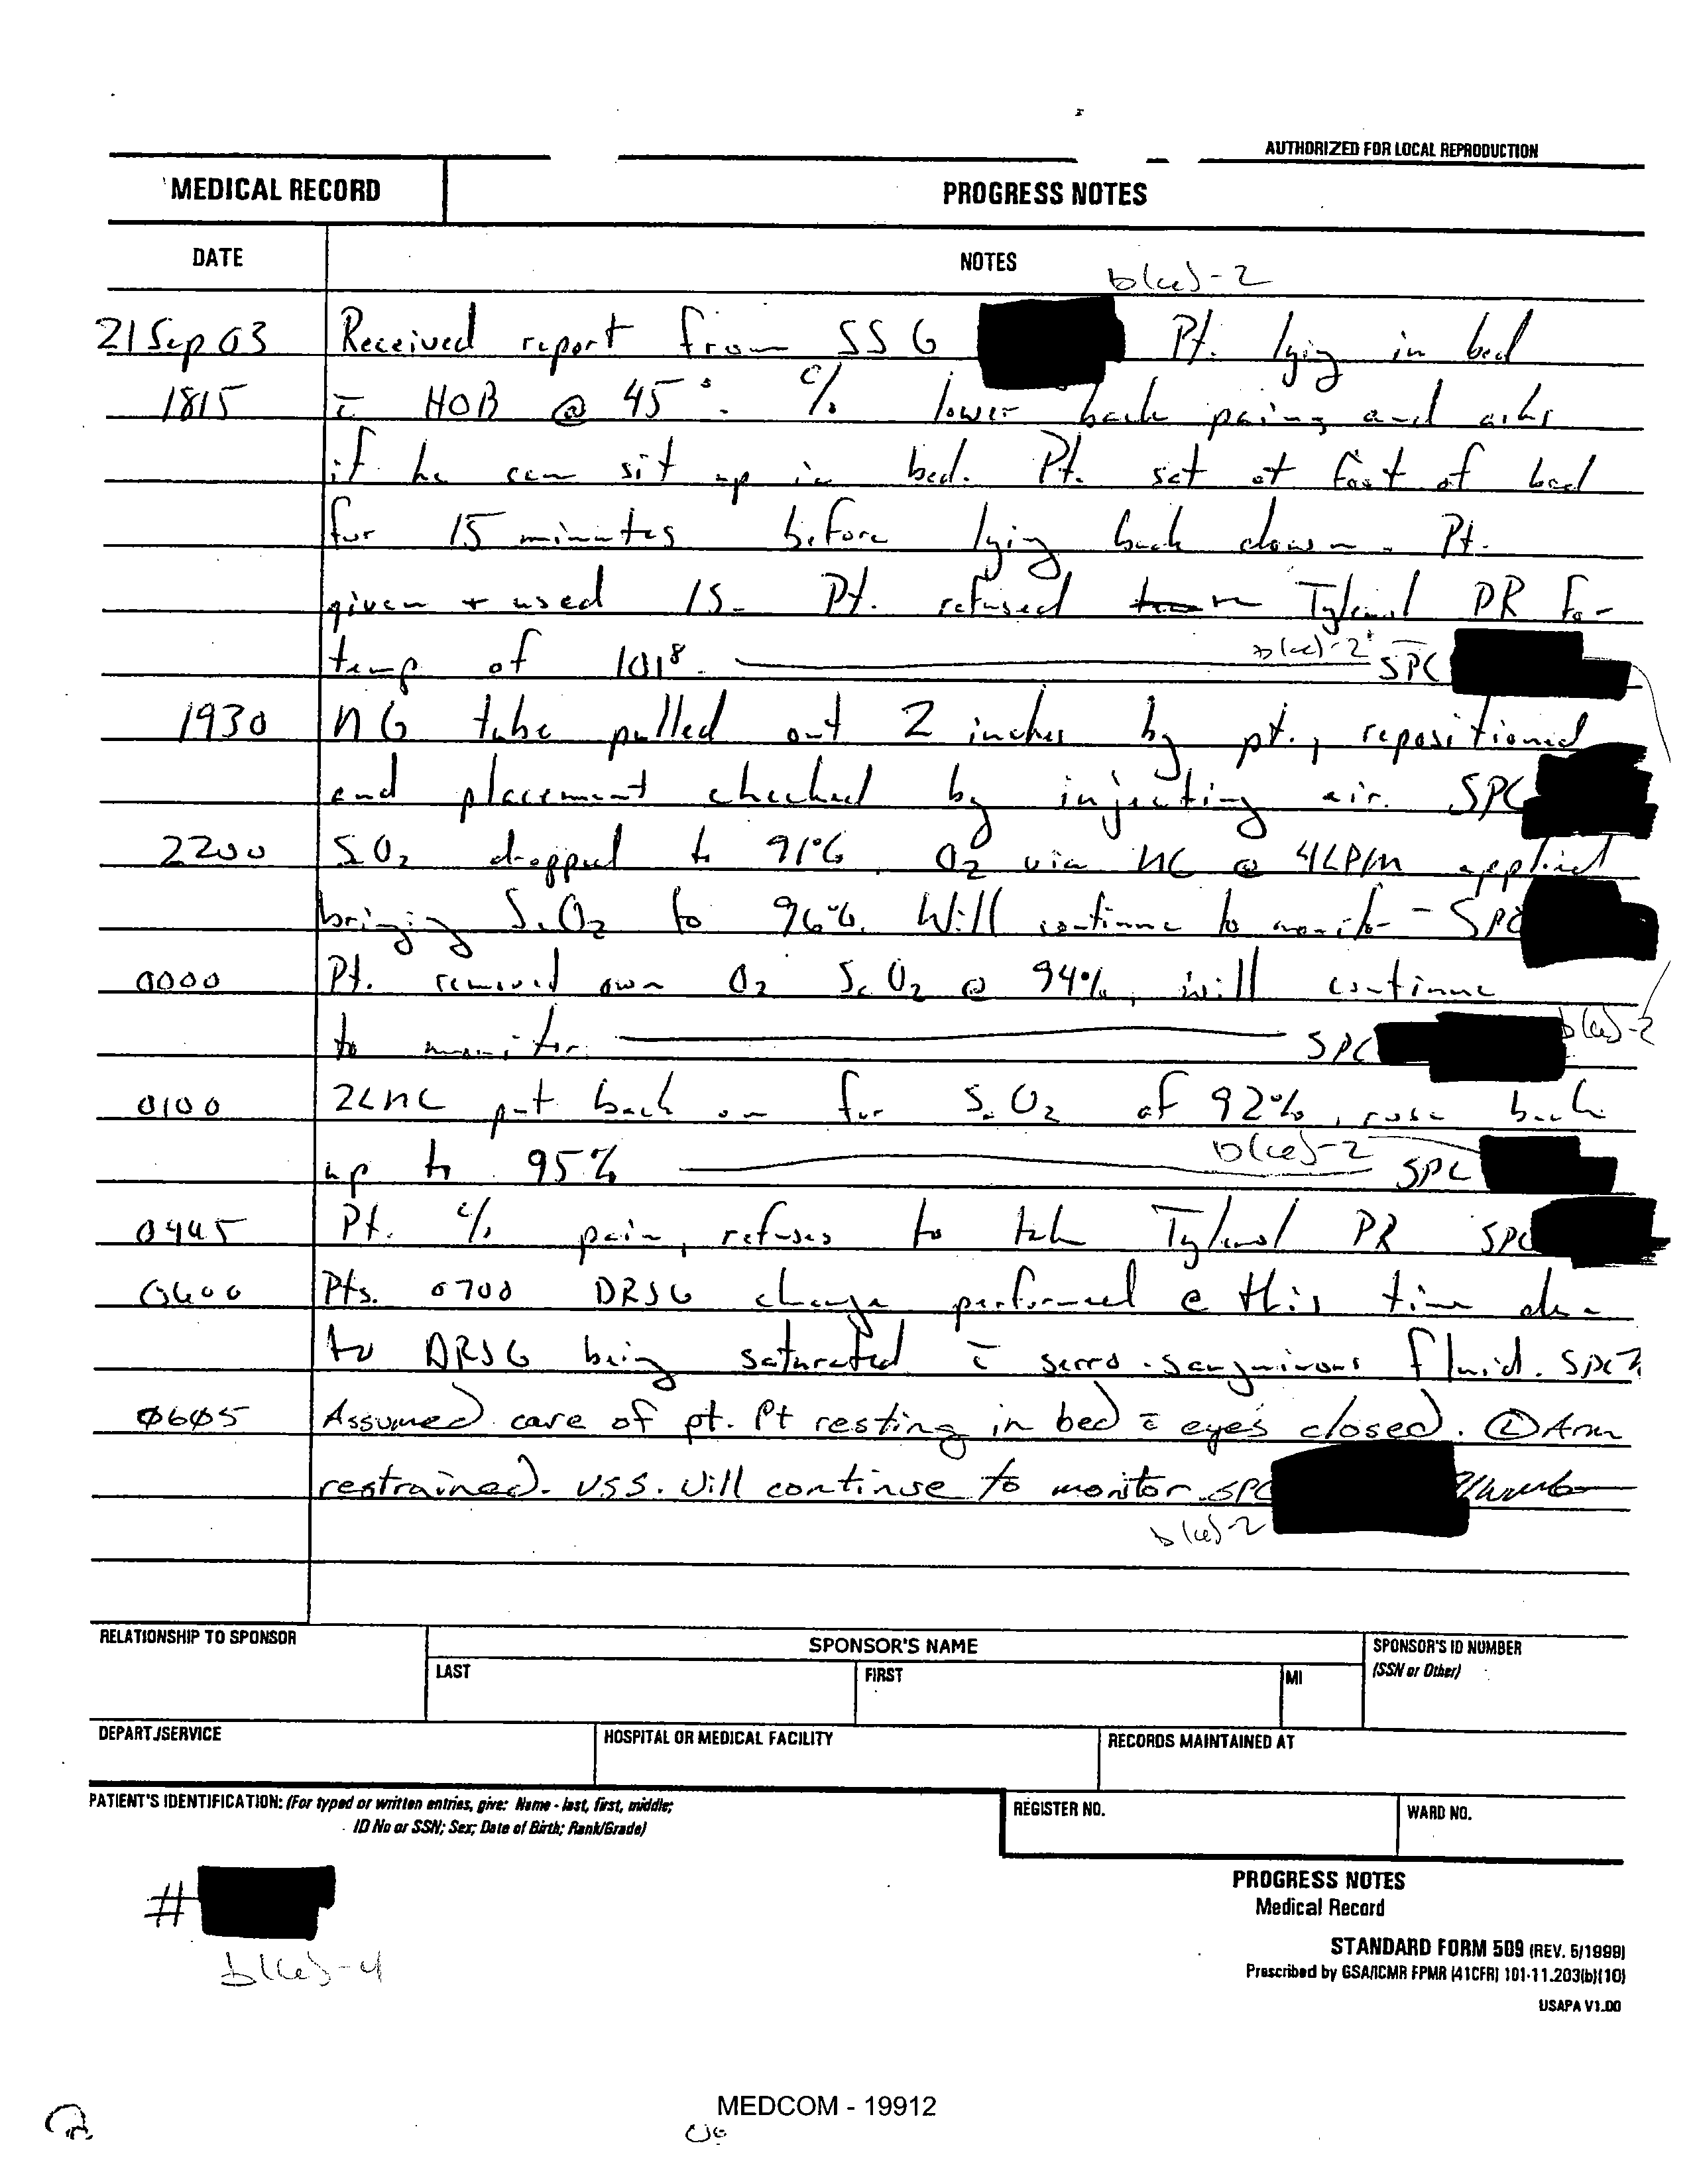 AUTHORIZED FOR LOCAL REPRODUCTION
MEDICAL RECORD PROGRESS NOTES
DATE NOTES
b(6)-2
21 Sep 03 Received report from SSG Pt. lying in bed
1815 c̄ HOB @ 45°. c/o lower back pain, and asks
if he can sit up in bed. Pt. sat at foot of bed
for 15 minutes before lying back down. Pt.
given + used IS. Pt. refused Tylenol PR for
temp of 101⁸. b(6)-2 SPC
1930 NG tube pulled out 2 inches by pt., repositioned
and placement checked by injecting air. SPC
2200 SaO2 dropped to 91%. O2 via NC @ 4LPM applied
bringing SaO2 to 96%. Will continue to monitor - SPC
0000 Pt. removed own O2 SaO2 @ 94%, will continue
to monitor. SPC b(6)-2
0100 2L NC put back on for SaO2 of 92%, rose back
up to 95% b(6)-2 SPC
0445 Pt. c/o pain, refuses to take Tylenol PR SPC
0600 Pts. 0700 DRSG change performed @ this time due
to DRSG being saturated c̄ serro-sanguinous fluid. SPC
0605 Assumed care of pt. Pt resting in bed c̄ eyes closed. Ⓛ Arm
restrained. VSS. Will continue to monitor SPC
b(6)-2
RELATIONSHIP TO SPONSOR SPONSOR'S NAME SPONSOR'S ID NUMBER
LAST FIRST MI (SSN or Other)
DEPART./SERVICE HOSPITAL OR MEDICAL FACILITY RECORDS MAINTAINED AT
PATIENT'S IDENTIFICATION: (For typed or written entries, give: Name - last, first, middle; REGISTER NO. WARD NO.
ID No or SSN; Sex; Date of Birth; Rank/Grade)
#
b(6)-4
PROGRESS NOTES
Medical Record
STANDARD FORM 509 (REV. 5/1999)
Prescribed by GSA/ICMR FPMR (41CFR) 101-11.203(b)(10)
USAPA V1.00
MEDCOM - 19912